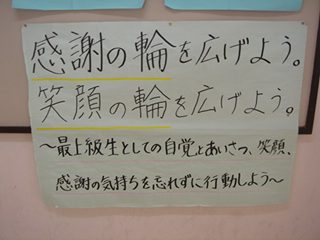 感謝の輪を広げよう。
笑顔の輪を広げよう。
～最上級生としての自覚とあいさつ、笑顔、
感謝の気持ちを忘れずに行動しよう～